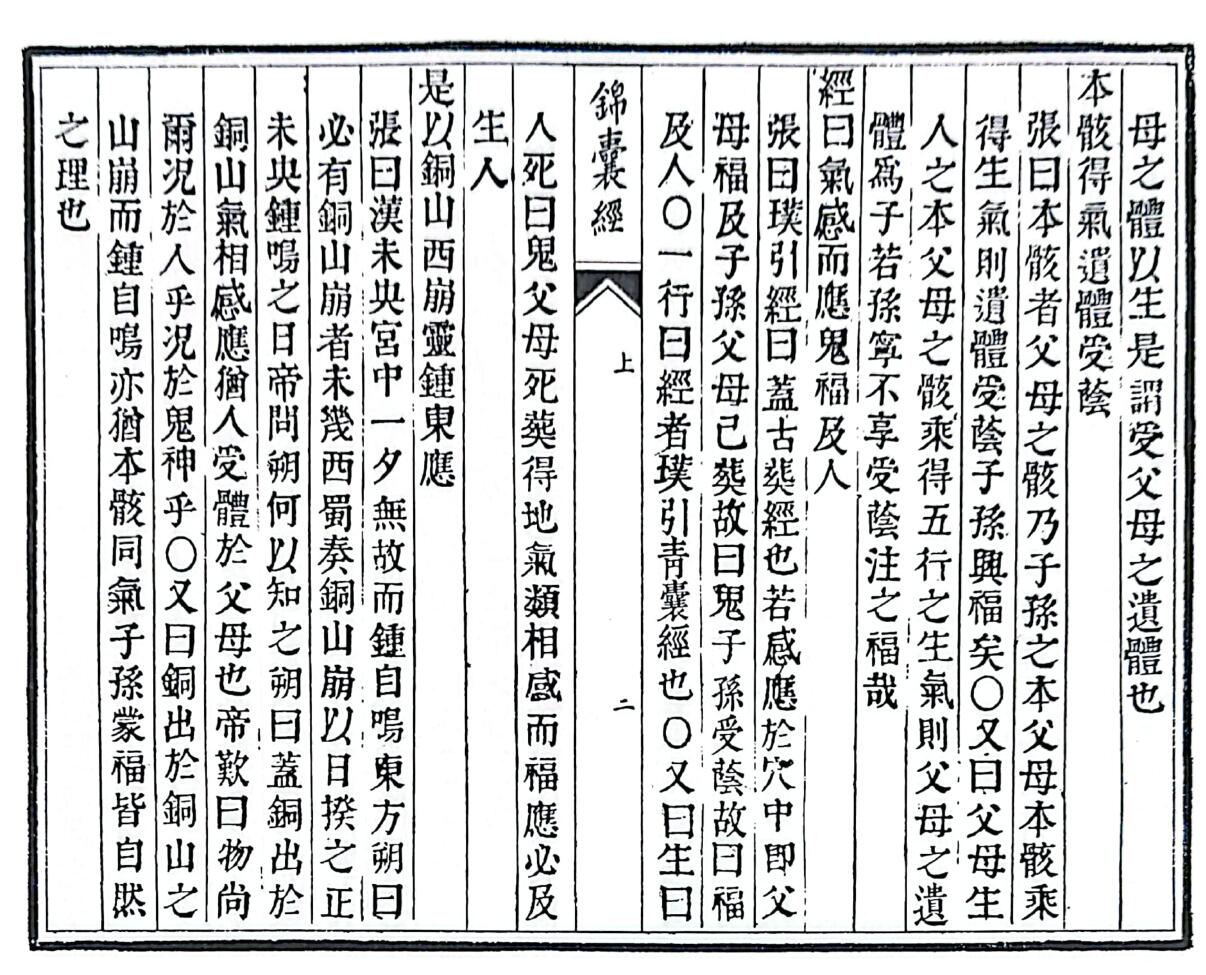 母之體以生是謂受父母之遺體也
本骸得氣遺體受蔭
張曰本骸者父母之骸乃子孫之本父母本骸乘
得生氣則遺體受蔭子孫興福矣〇又曰父母生
人之本父母之骸乘得五行之生氣則父母之遺
體爲子若孫寧不享受蔭注之福哉
經曰氣感而應鬼福及人
張曰璞引經曰蓋古葬經也若感應於穴中即父
母福及子孫父母已葬故曰鬼子孫受蔭故曰福
及人〇一行曰經者璞引靑囊經也〇又曰生曰
錦囊經 上 二
人死曰鬼父母死葬得地氣類相感而福應必及
生人
是以銅山西崩靈鍾東應
張曰漢未央宮中一夕無故而鍾自鳴東方朔曰
必有銅山崩者未幾西蜀奏銅山崩以日揆之正
未央鍾鳴之日帝問朔何以知之朔曰蓋銅出於
銅山氣相感應猶人受體於父母也帝歎曰物尚
爾況於人乎況於鬼神乎〇又曰銅出於銅山之
山崩而鍾自鳴亦猶本骸同氣子孫蒙福皆自然
之理也